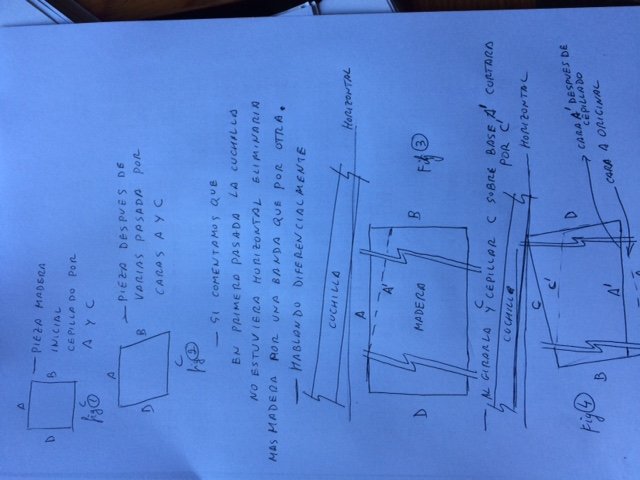 A
D B
C
fig ①
— PIEZA MADERA
INICIAL
CEPILLADO POR
A y C
A
D B
C
fig ②
— PIEZA DESPUES DE
VARIAS PASADA POR
CARAS A y C
— SI COMENTAMOS QUE
EN PRIMERA PASADA LA CUCHILLA
NO ESTUVIERA HORIZONTAL ELIMINARIA
MAS MADERA POR UNA BANDA QUE POR OTRA.
— HABLANDO DIFERENCIALMENTE
CUCHILLA
HORIZONTAL
A
A'
D MADERA B
C
Fig ③
— AL GIRARLA Y CEPILLAR C SOBRE BASE A' CORTARA
POR C'
CUCHILLA
HORIZONTAL
C
C'
B D
A'
CARA A' DESPUES DE
CEPILLADO
CARA A ORIGINAL
Fig ④